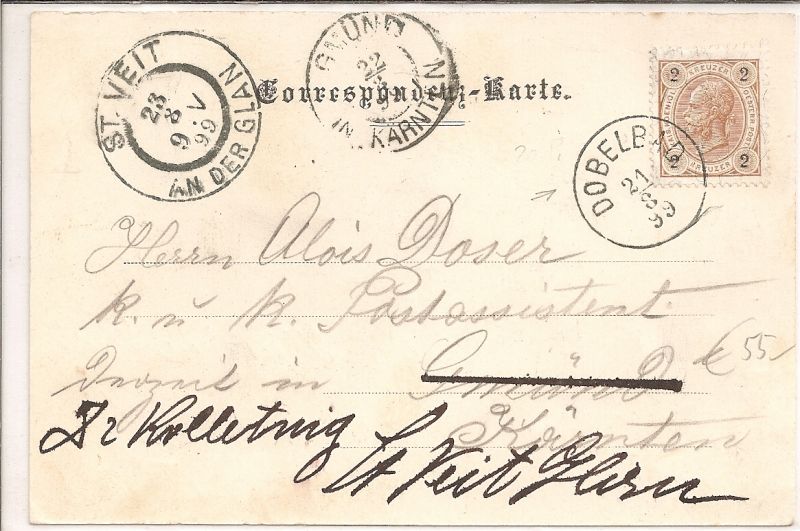 ST. VEIT AN DER GLAN
23 8 99 9.V
GMÜND IN KÄRNTEN
22 8 99
Correspondenz-Karte.
2 KREUZER 2
2 KREUZER 2
DOBELBAD
21 8 99
Herrn Alois Doser
k. u k. Postassistent
Derzeit in Gmünd
€ 55-
Kärnten
St Veit Glan